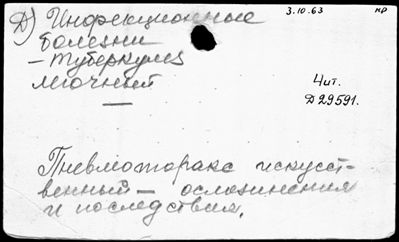 Д) Инфекционные 3.10.63 нр
болезни
- туберкулез
легочный
Чит.
Д 29591.
Пневмоторакс искусст-
венный - осложнения
и последствия.